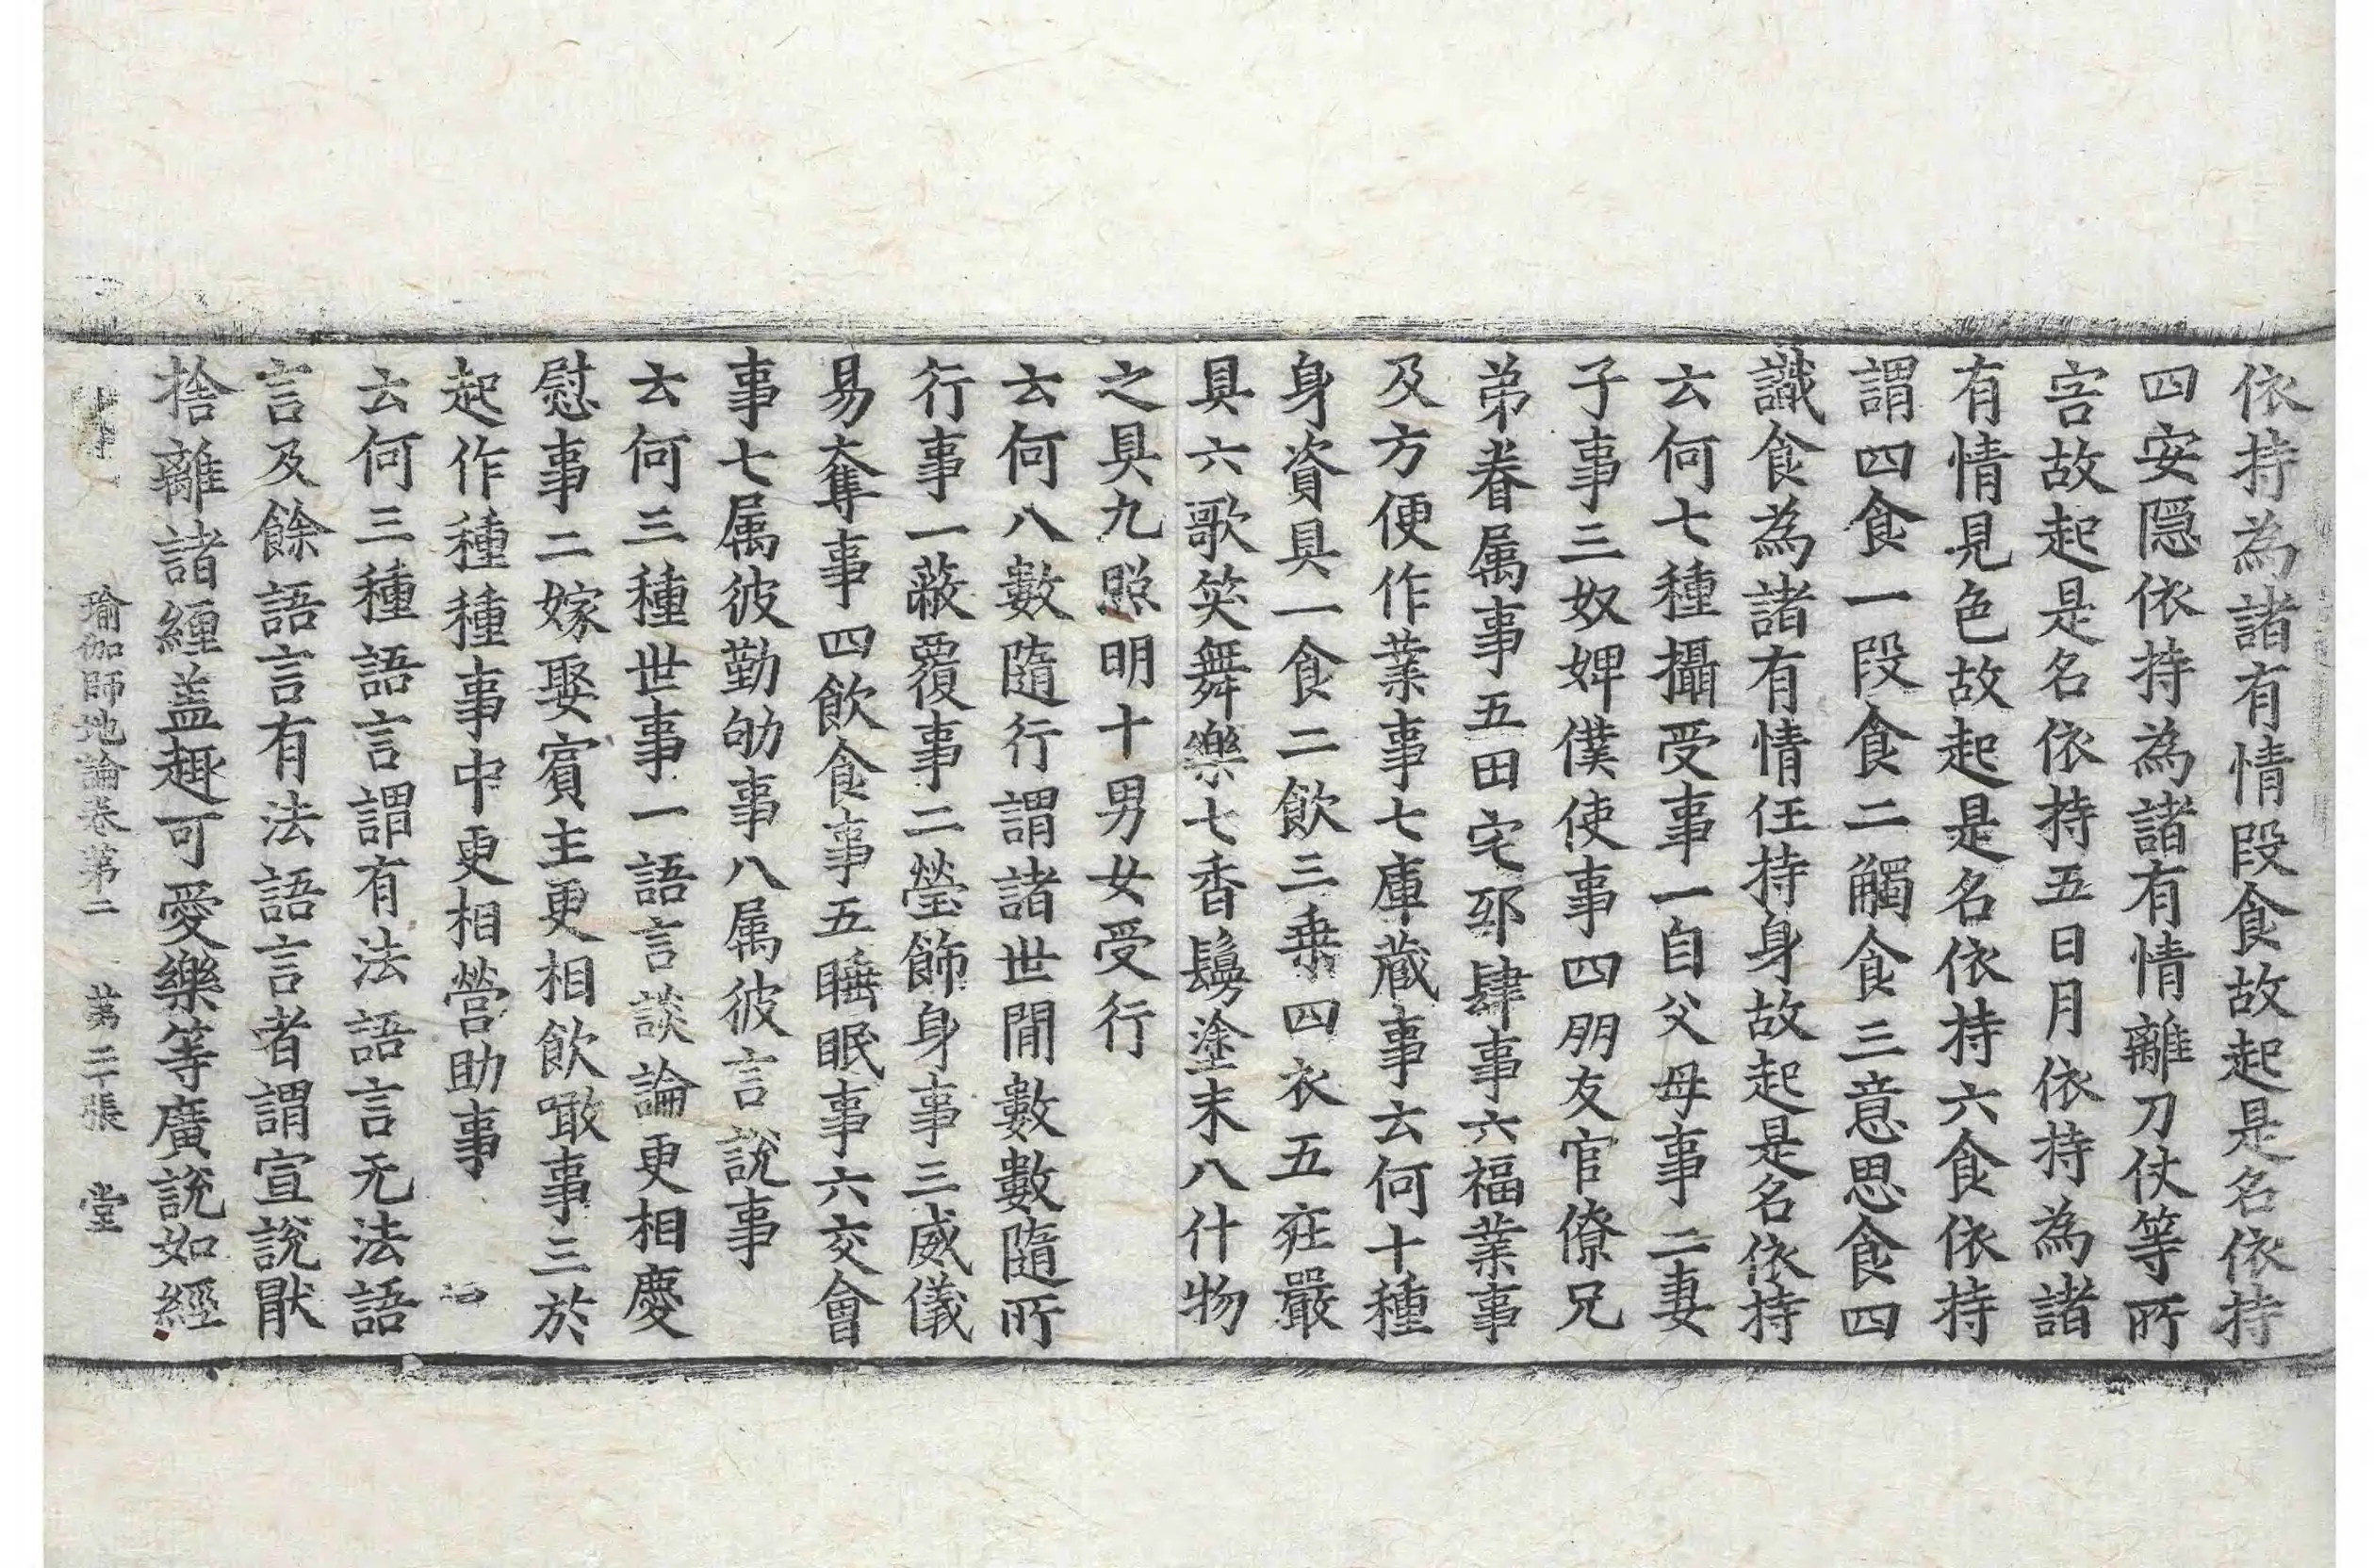 依持為諸有情段食故起是名依持
四安隱依持為諸有情離刀仗等所
害故起是名依持五日月依持為諸
有情見色故起是名依持六食依持
謂四食一段食二觸食三意思食四
識食為諸有情任持身故起是名依持
云何七種攝受事一自父母事二妻
子事三奴婢僕使事四朋友官僚兄
弟眷属事五田宅邸肆事六福業事
及方便作業事七庫蔵事云何十種
身資具一食二飲三乗四衣五莊嚴
具六歌笑舞樂七香鬘塗末八什物
之具九照明十男女受行
云何八數隨行謂諸世間數數隨所
行事一蔽覆事二瑩飾身事三威儀
易奪事四飲食事五睡眠事六交會
事七属彼勤劬事八属彼言說事
云何三種世事一語言談論更相慶
慰事二嫁娶賓主更相飲噉事三於
起作種種事中更相營助事
云何三種語言謂有法語言无法語
言及餘語言有法語言者謂宣說猒
捨離諸纏盖趣可愛樂等廣說如經
瑜伽師地論卷第二 第二十張 堂